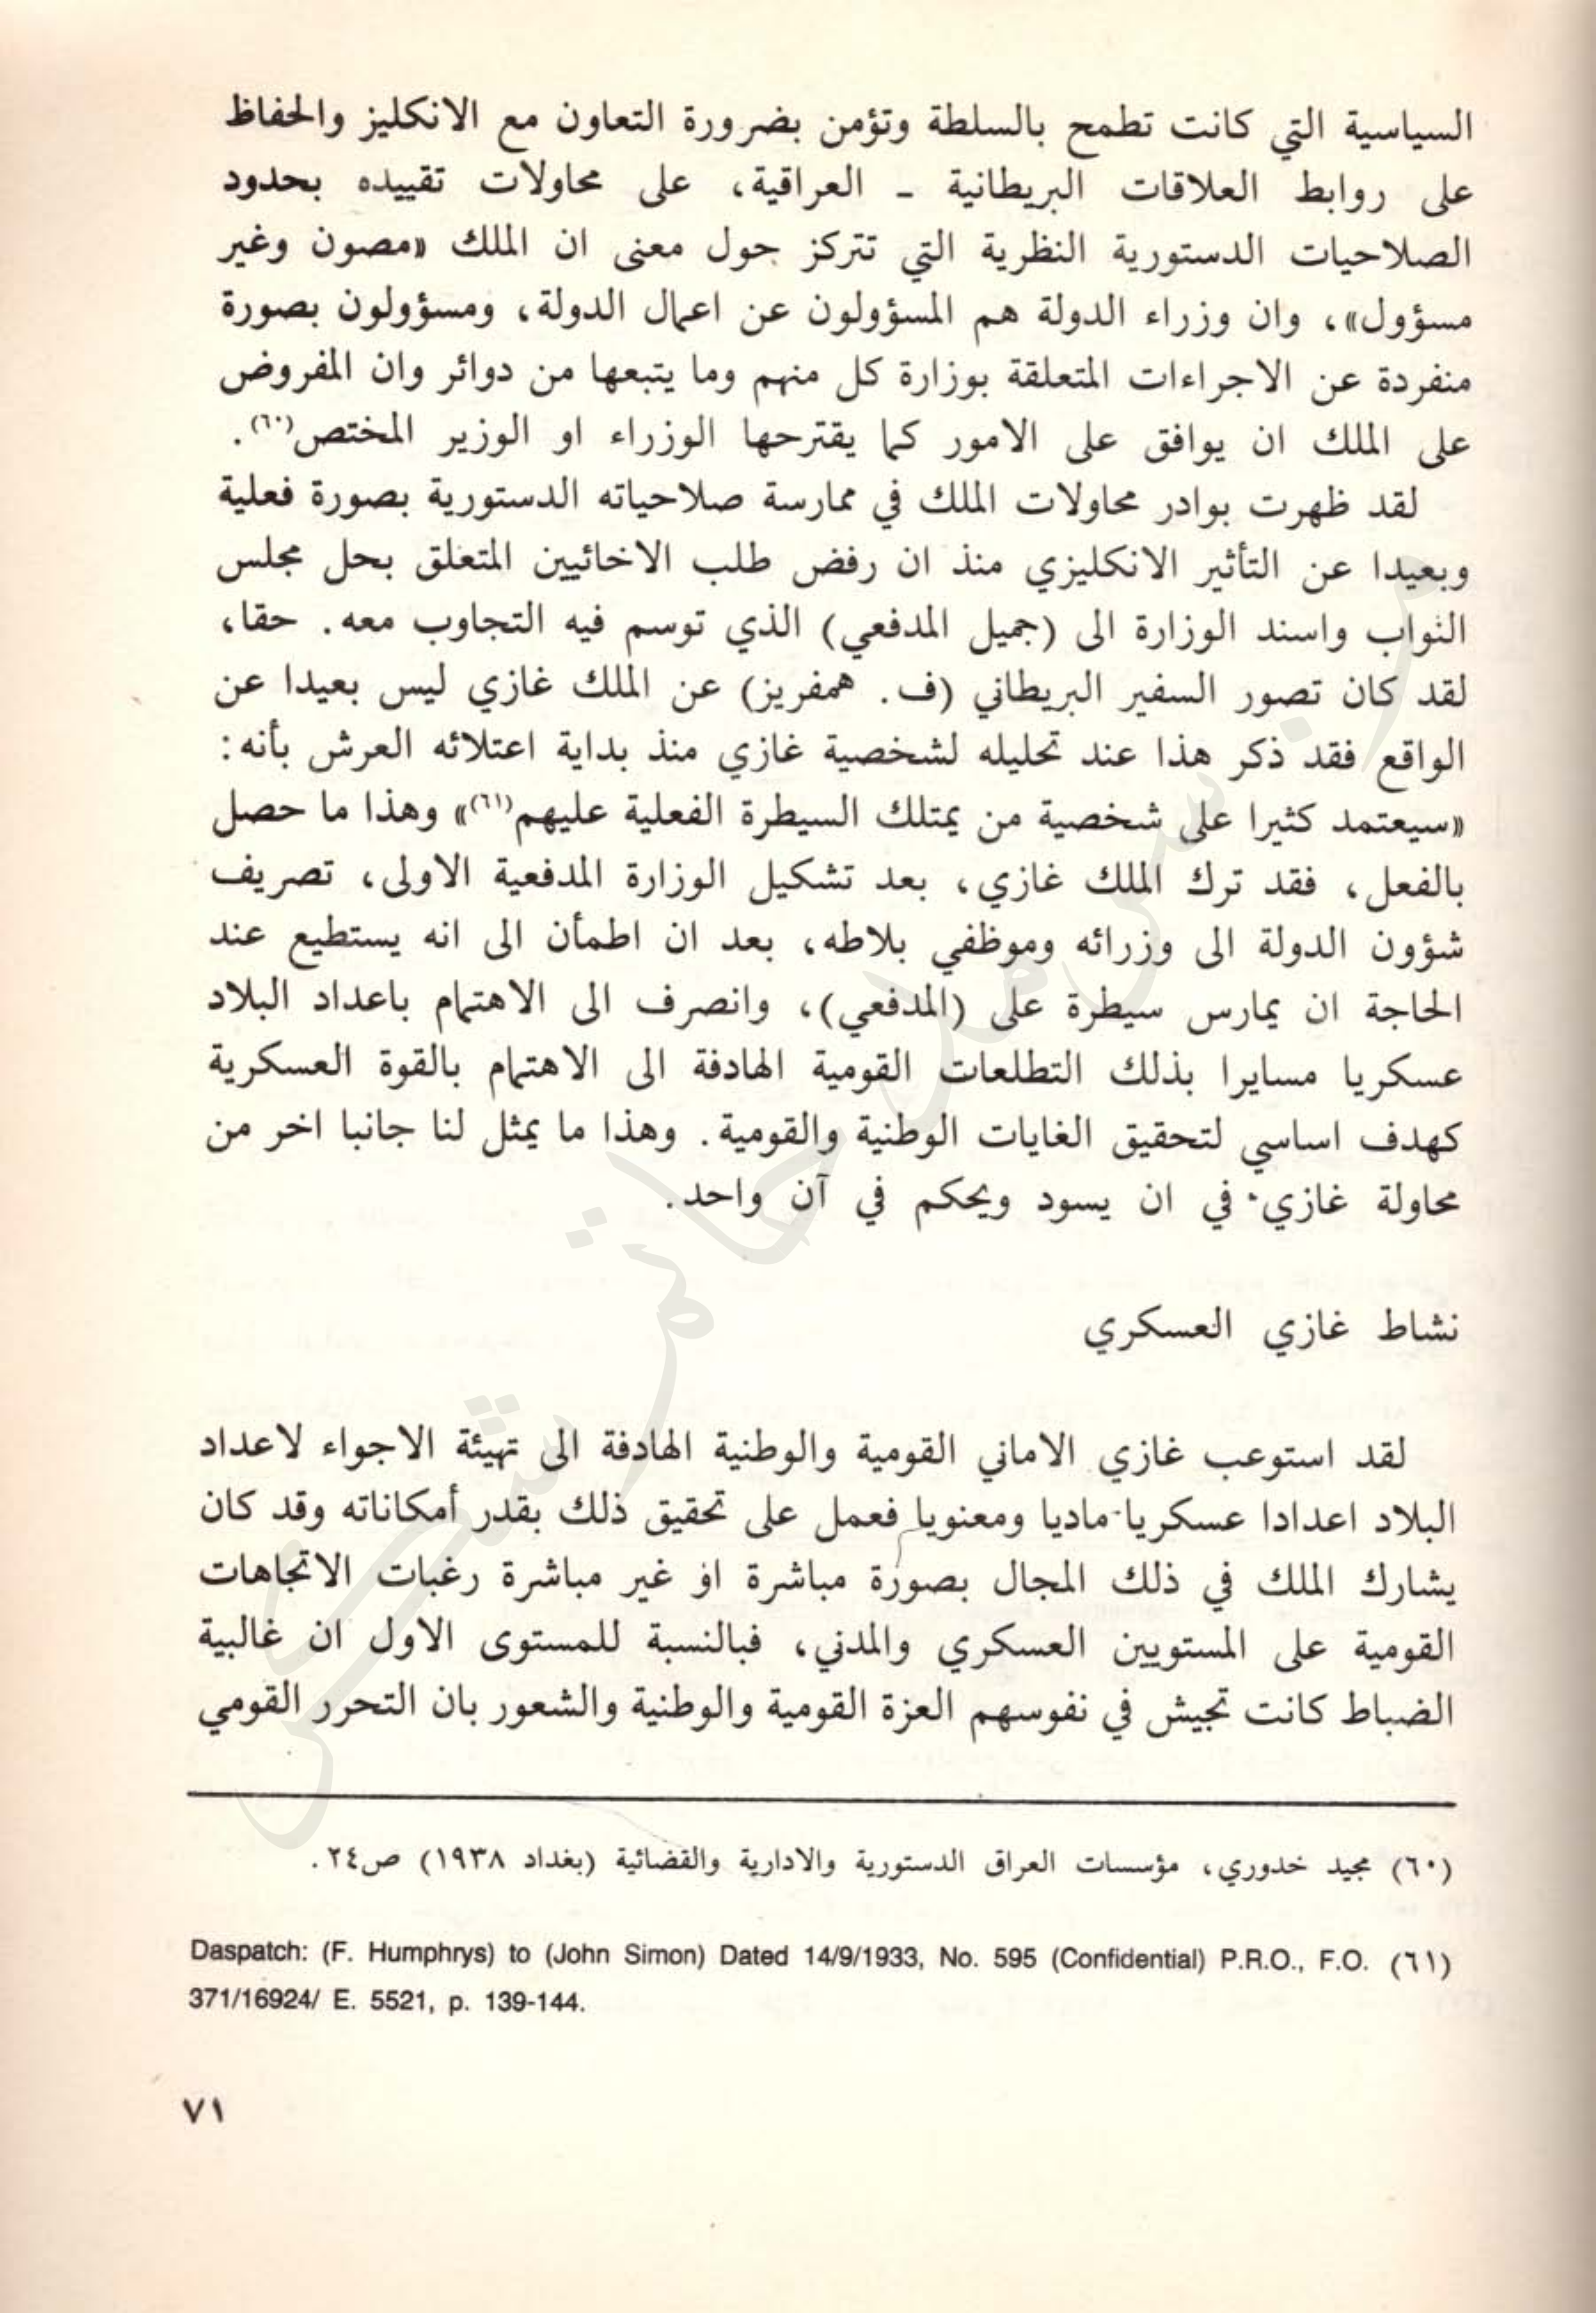 السياسية التي كانت تطمح بالسلطة وتؤمن بضرورة التعاون مع الانكليز والحفاظ
على روابط العلاقات البريطانية - العراقية، على محاولات تقييده بحدود
الصلاحيات الدستورية النظرية التي تتركز حول معنى ان الملك «مصون وغير
مسؤول»، وان وزراء الدولة هم المسؤولون عن اعمال الدولة، ومسؤولون بصورة
منفردة عن الاجراءات المتعلقة بوزارة كل منهم وما يتبعها من دوائر وان المفروض
على الملك ان يوافق على الامور كما يقترحها الوزراء او الوزير المختص(٦٠).
لقد ظهرت بوادر محاولات الملك في ممارسة صلاحياته الدستورية بصورة فعلية
وبعيدا عن التأثير الانكليزي منذ ان رفض طلب الاخائيين المتعلق بحل مجلس
النواب واسند الوزارة الى (جميل المدفعي) الذي توسم فيه التجاوب معه. حقا،
لقد كان تصور السفير البريطاني (ف. همفريز) عن الملك غازي ليس بعيدا عن
الواقع فقد ذكر هذا عند تحليله لشخصية غازي منذ بداية اعتلائه العرش بأنه:
«سيعتمد كثيرا على شخصية من يمتلك السيطرة الفعلية عليهم(٦١)» وهذا ما حصل
بالفعل، فقد ترك الملك غازي، بعد تشكيل الوزارة المدفعية الاولى، تصريف
شؤون الدولة الى وزرائه وموظفي بلاطه، بعد ان اطمأن الى انه يستطيع عند
الحاجة ان يمارس سيطرة على (المدفعي)، وانصرف الى الاهتمام باعداد البلاد
عسكريا مسايرا بذلك التطلعات القومية الهادفة الى الاهتمام بالقوة العسكرية
كهدف اساسي لتحقيق الغايات الوطنية والقومية. وهذا ما يمثل لنا جانبا اخر من
محاولة غازي في ان يسود ويحكم في آن واحد.
نشاط غازي العسكري
لقد استوعب غازي الاماني القومية والوطنية الهادفة الى تهيئة الاجواء لاعداد
البلاد اعدادا عسكريا ماديا ومعنويا فعمل على تحقيق ذلك بقدر أمكاناته وقد كان
يشارك الملك في ذلك المجال بصورة مباشرة او غير مباشرة رغبات الاتجاهات
القومية على المستويين العسكري والمدني، فبالنسبة للمستوى الاول ان غالبية
الضباط كانت تجيش في نفوسهم العزة القومية والوطنية والشعور بان التحرر القومي
(٦٠) مجيد خدوري، مؤسسات العراق الدستورية والادارية والقضائية (بغداد ١٩٣٨) ص٢٤.
(٦١) Daspatch: (F. Humphrys) to (John Simon) Dated 14/9/1933, No. 595 (Confidential) P.R.O., F.O.
371/16924/ E. 5521, p. 139-144.
٧١